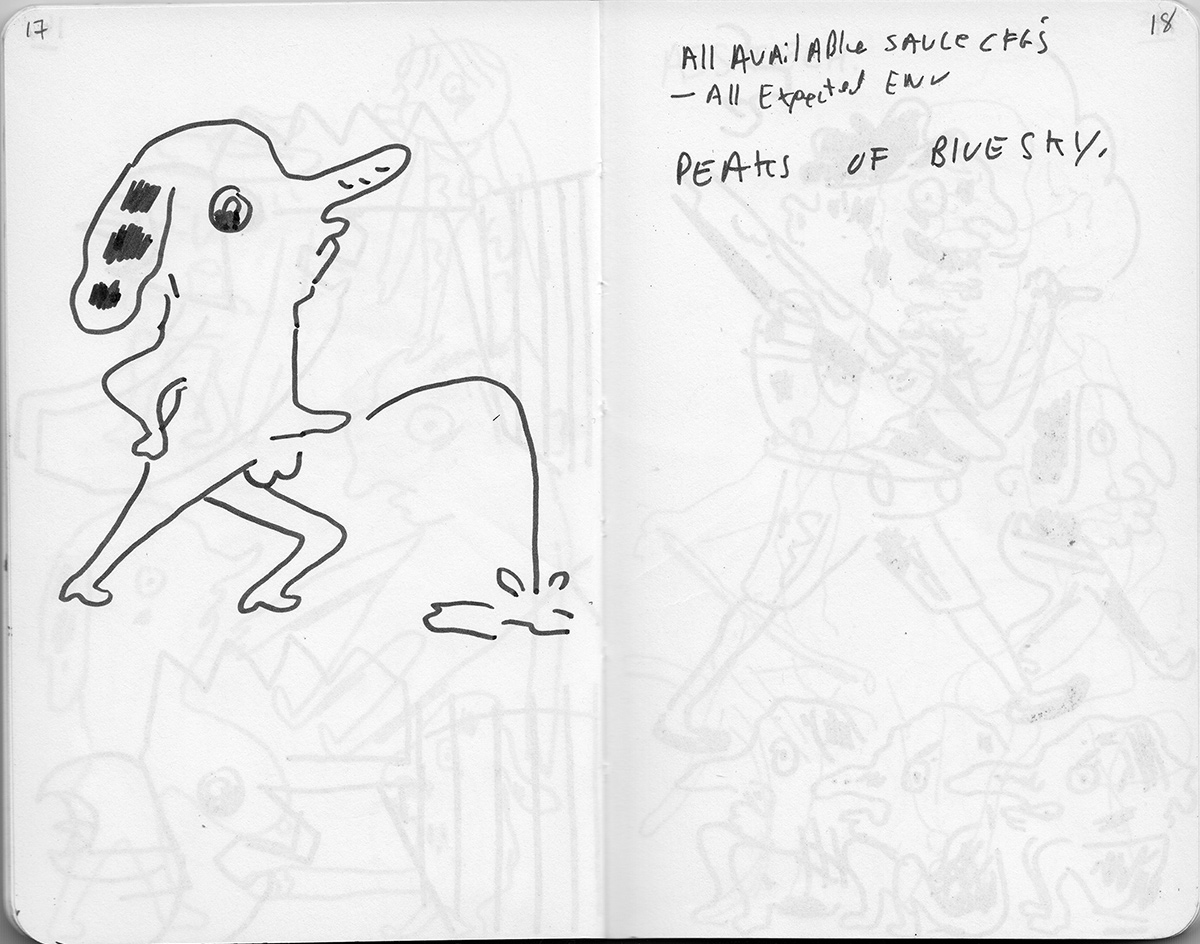 17
18
All AVAilABle SAUCE CFG's
- All Expected ENV
PEAKS OF BlUE SKY.